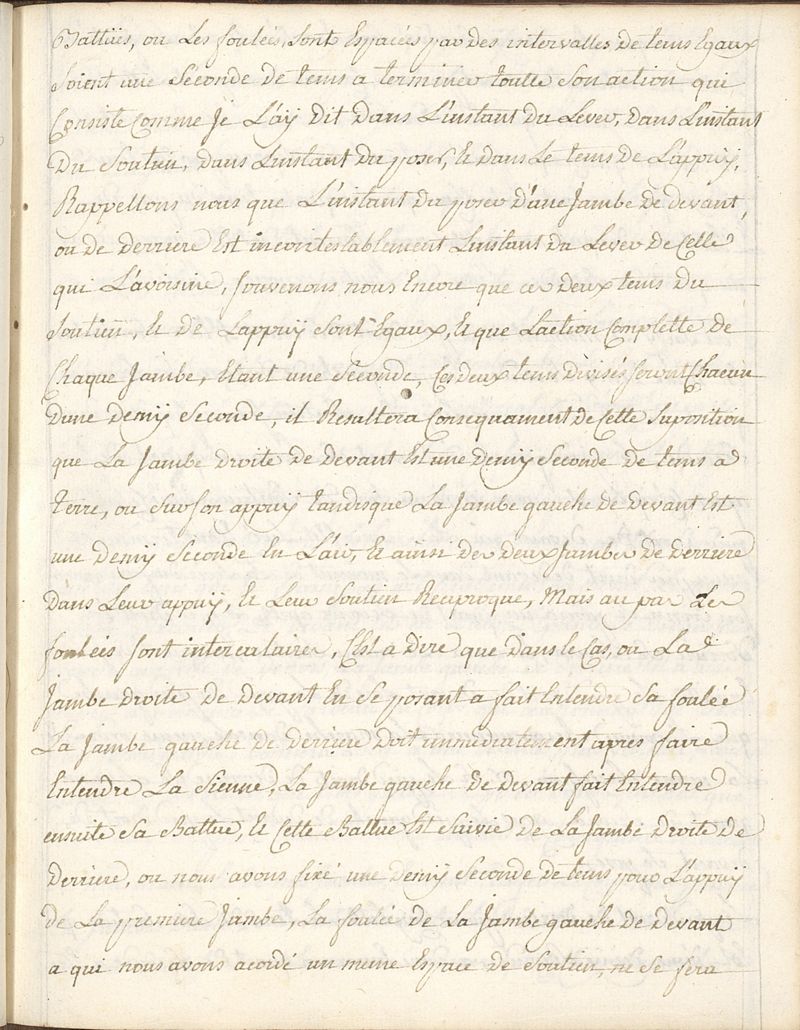 Battües, ou Les foulées, sont Espacées par des intervalles de tems Egaux
soient une Seconde de tems a terminer toutte son action qui
Consiste Comme Je L'aÿ Dit Dans L'instant Du Lever, Dans L'instant
Du Soutien, dans Linstant Du poser, & dans Le tems de L'appuÿ,
Rappellons nous que L'instant Du poser d'une Jambe De devant,
ou de Derriere Est incontestablement Linstant Du Lever de Celle
qui L'avoisine, souvenons nous Encore que ces Deux tems Du
Soutien, & de Lappuÿ Sont Egaux, & que Laction Complette de
Chaque Jambe, Etant une Seconde, Ces deux tems divisés seront Chacun
Dune Demÿ Seconde, il Resultera Consequament de Cette Suposition
que La Jambe Droite de Devant Est une Demÿ Seconde de tems a
terre, ou Sur son appuÿ tandisque La Jambe gauche de Devant Est
une Demÿ Seconde En L'air, & ainsi des deux Jambes de Derriere
Dans Leur appuÿ, & Leur Soutien Reciproque, Mais au pas Les
foulées sont intercalaires, C'est a Dire que Dans le Cas, ou La
Jambe Droite de Devant En Se posant a fait Entendre Sa foulée
La Jambe gauche de Derriere Doit immediatement apres faire
Entendre La Sienne, La Jambe gauche de devant fait Entendre
ensuite Sa Battue, & Cette Battue Est Suivie de La Jambe Droite de
Derriere, ou nous avons fixé une Demÿ Seconde de tems pour L'appuÿ
de La premiere Jambe, La foulée de La Jambe gauche de Devant
a qui nous avons acordé un meme Espace de Soutien, ne Se fera